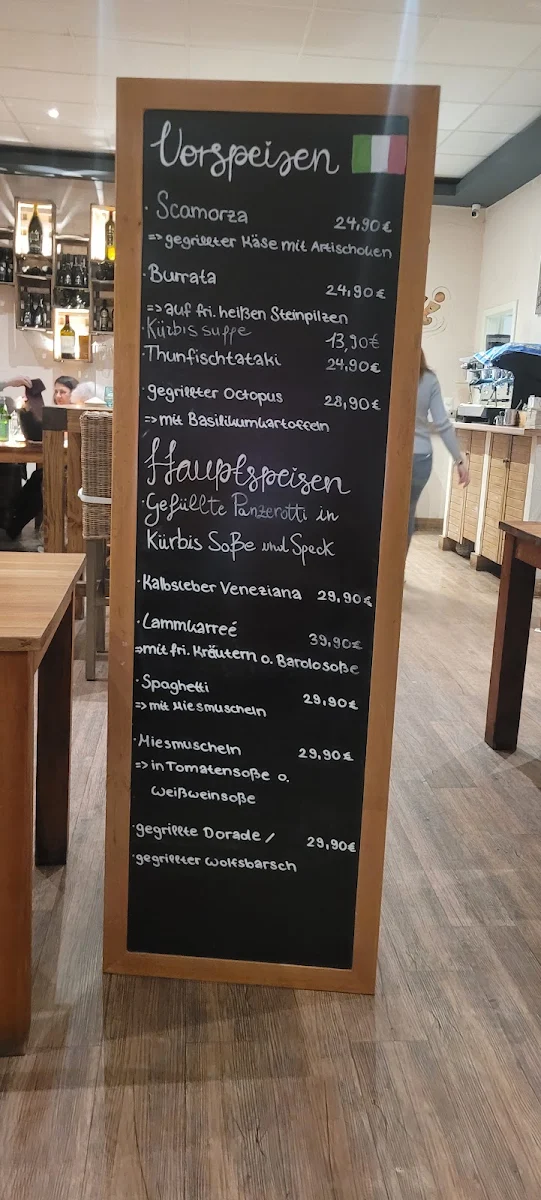 Vorspeisen
· Scamorza 24,90€
=> gegrillter Käse mit Artischoken
· Burrata 24,90€
=> auf fri. heißen Steinpilzen
Kürbis suppe 13,90€
· Thunfischtataki 24,90€
· gegrillter Octopus 28,90€
=> mit Basilikumkartoffeln
Hauptspeisen
· Gefüllte Panzerotti in
Kürbis Soße und Speck
· Kalbsleber Veneziana 29,90€
· Lammkarreé 39,90€
=> mit fri. Kräutern o. Barolosoße
· Spaghetti 29,90€
=> mit Miesmuscheln
· Miesmuscheln 29,90€
=> in Tomatensoße o.
Weißweinsoße
· gegrillte Dorade / 29,90€
· gegrillter Wolfsbarsch